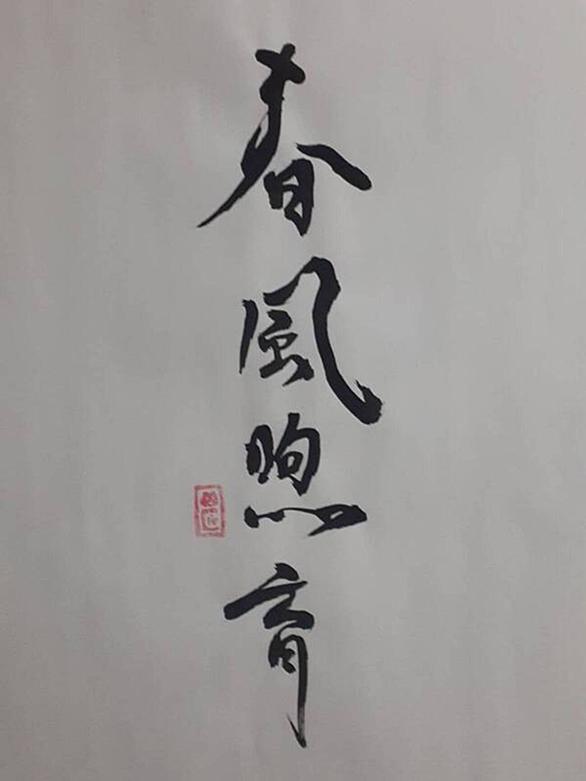 春風煦育